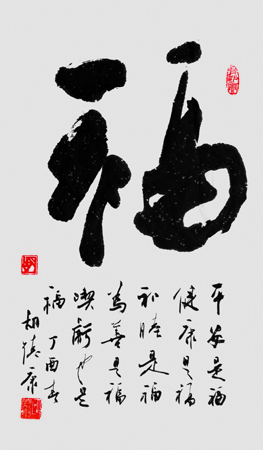 福
平安是福
健康是福
和睦是福
为善是福
喫虧也是
福 丁酉春
胡德康